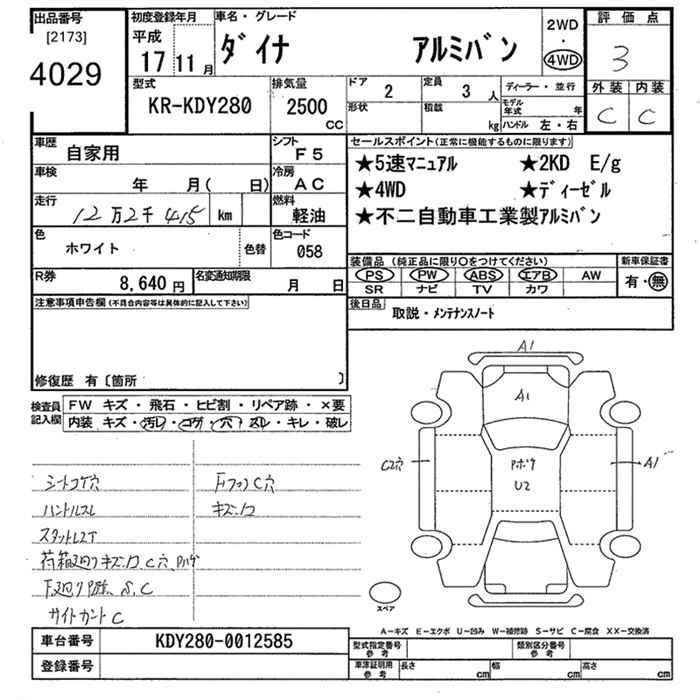 出品番号 初度登録年月 車名・グレード 2WD ・ 4WD 評価点
[2173] 平成 ダイナ アルミバン 3
4029 17年 11月
外装 内装
C C
型式 排気量 ドア 2 定員 3 人 ディーラー・並行
KR-KDY280 2500 CC 形状 積載 kg モデル年式 年
ハンドル 左・右
車歴 自家用 シフト F5 セールスポイント(正常に機能するものに限ります)
車検 年 月( 日) 冷房 AC ★5速マニュアル ★2KD E/g
走行 12万2千415 km 燃料 軽油 ★4WD ★ディーゼル
★不二自動車工業製アルミバン
色 ホワイト 色替 色コード 058
装備品(純正品に限り○をつけてください) 新車保証書
R券 8,640円 名変通知期限 月 日 PS PW ABS エアB AW 有・無
SR ナビ TV カワ
注意事項申告欄(不具合内容等は具体的に記入して下さい) 後日品 取説・メンテナンスノート
修復歴 有〔箇所 〕
検査員記入欄 FW キズ・飛石・ヒビ割・リペア跡・×要
内装 キズ・汚レ・コゲ・穴・スレ・キレ・破レ
A1
A1
C2穴
Pボケ
U2
A1
シートコゲ穴
ハンドルスレ
キズ、凹
荷箱廻りキズ、凹、C穴、Pハゲ
下廻りP跡、S、C
サイドガードC
スペア
A-キズ E-エクボ U-凹み W-補修跡 S-サビ C-腐食 XX-交換済
車台番号 KDY280-0012585 型式指定番号 参考 類別区分番号 参考
登録番号 車庫証明用 参考 長さ cm 幅 cm 高さ cm